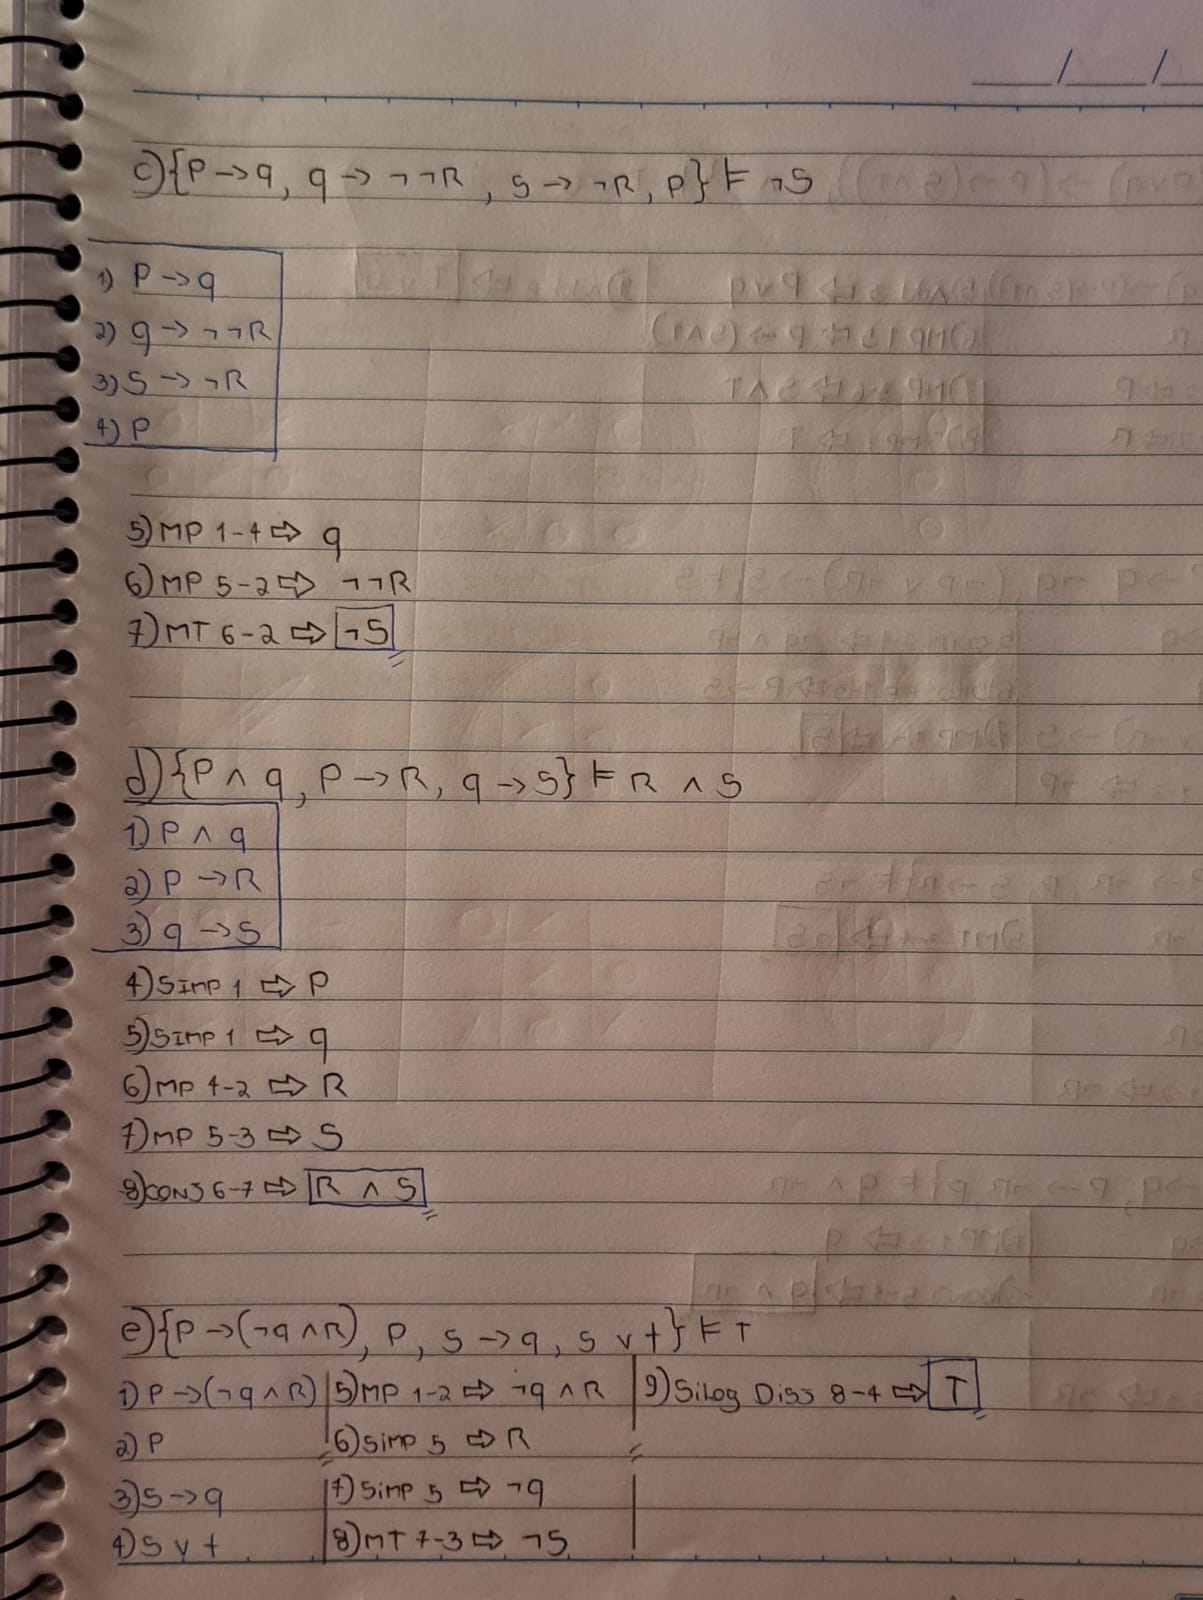 __/__/
c) {P → q, q → ¬¬R, S → ¬R, P} ⊨ ¬S
1) P → q
2) q → ¬¬R
3) S → ¬R
4) P
5) MP 1-4 ⇨ q
6) MP 5-2 ⇨ ¬¬R
7) MT 6-2 ⇨ ¬S
d) {P ∧ q, P → R, q → S} ⊨ R ∧ S
1) P ∧ q
2) P → R
3) q → S
4) SIMP 1 ⇨ P
5) SIMP 1 ⇨ q
6) MP 4-2 ⇨ R
7) MP 5-3 ⇨ S
8) CONJ 6-7 ⇨ R ∧ S
e) {P → (¬q ∧ R), P, S → q, S ∨ t} ⊨ T
1) P → (¬q ∧ R)
2) P
3) S → q
4) S ∨ t
5) MP 1-2 ⇨ ¬q ∧ R
6) SIMP 5 ⇨ R
7) SIMP 5 ⇨ ¬q
8) MT 7-3 ⇨ ¬S
9) Silog Disj 8-4 ⇨ T